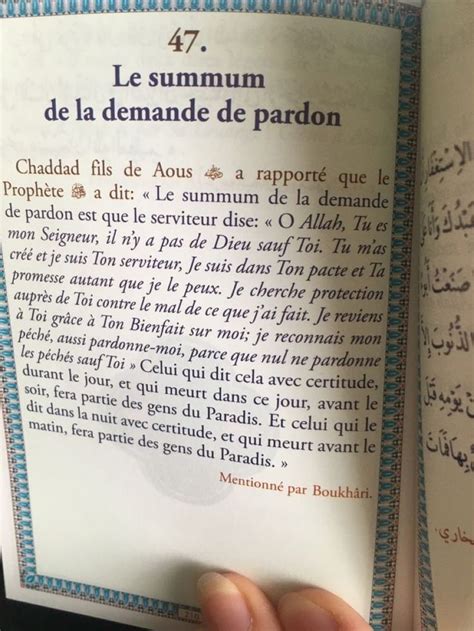 47.
Le summum
de la demande de pardon
Chaddad fils de Aous a rapporté que le
Prophète ﷺ a dit: « Le summum de la demande
de pardon est que le serviteur dise: « O Allah, Tu es
mon Seigneur, il n'y a pas de Dieu sauf Toi. Tu m'as
créé et je suis Ton serviteur, Je suis dans Ton pacte et Ta
promesse autant que je le peux. Je cherche protection
auprès de Toi contre le mal de ce que j'ai fait. Je reviens
à Toi grâce à Ton Bienfait sur moi; je reconnais mon
péché, aussi pardonne-moi, parce que nul ne pardonne
les péchés sauf Toi » Celui qui dit cela avec certitude,
durant le jour, et qui meurt dans ce jour, avant le
soir, fera partie des gens du Paradis. Et celui qui le
dit dans la nuit avec certitude, et qui meurt avant le
matin, fera partie des gens du Paradis. »
Mentionné par Boukhâri.